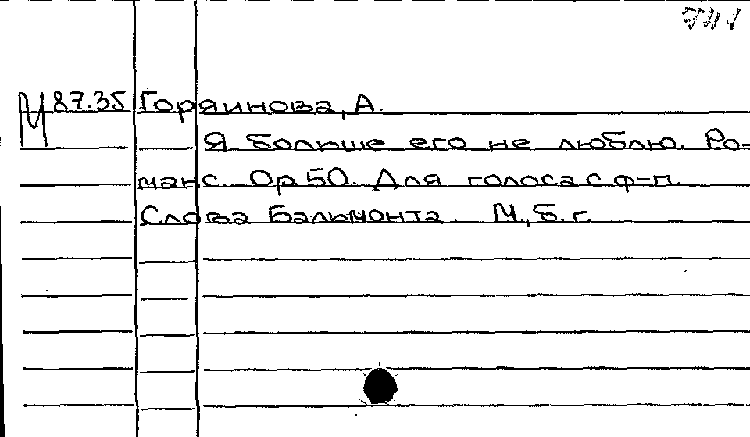 М 87.35 Горяинова, А.
Я больше его не люблю. Ро-
манс. Op 50. Для голоса с ф-п.
Слова Бальмонта. М., б. г.